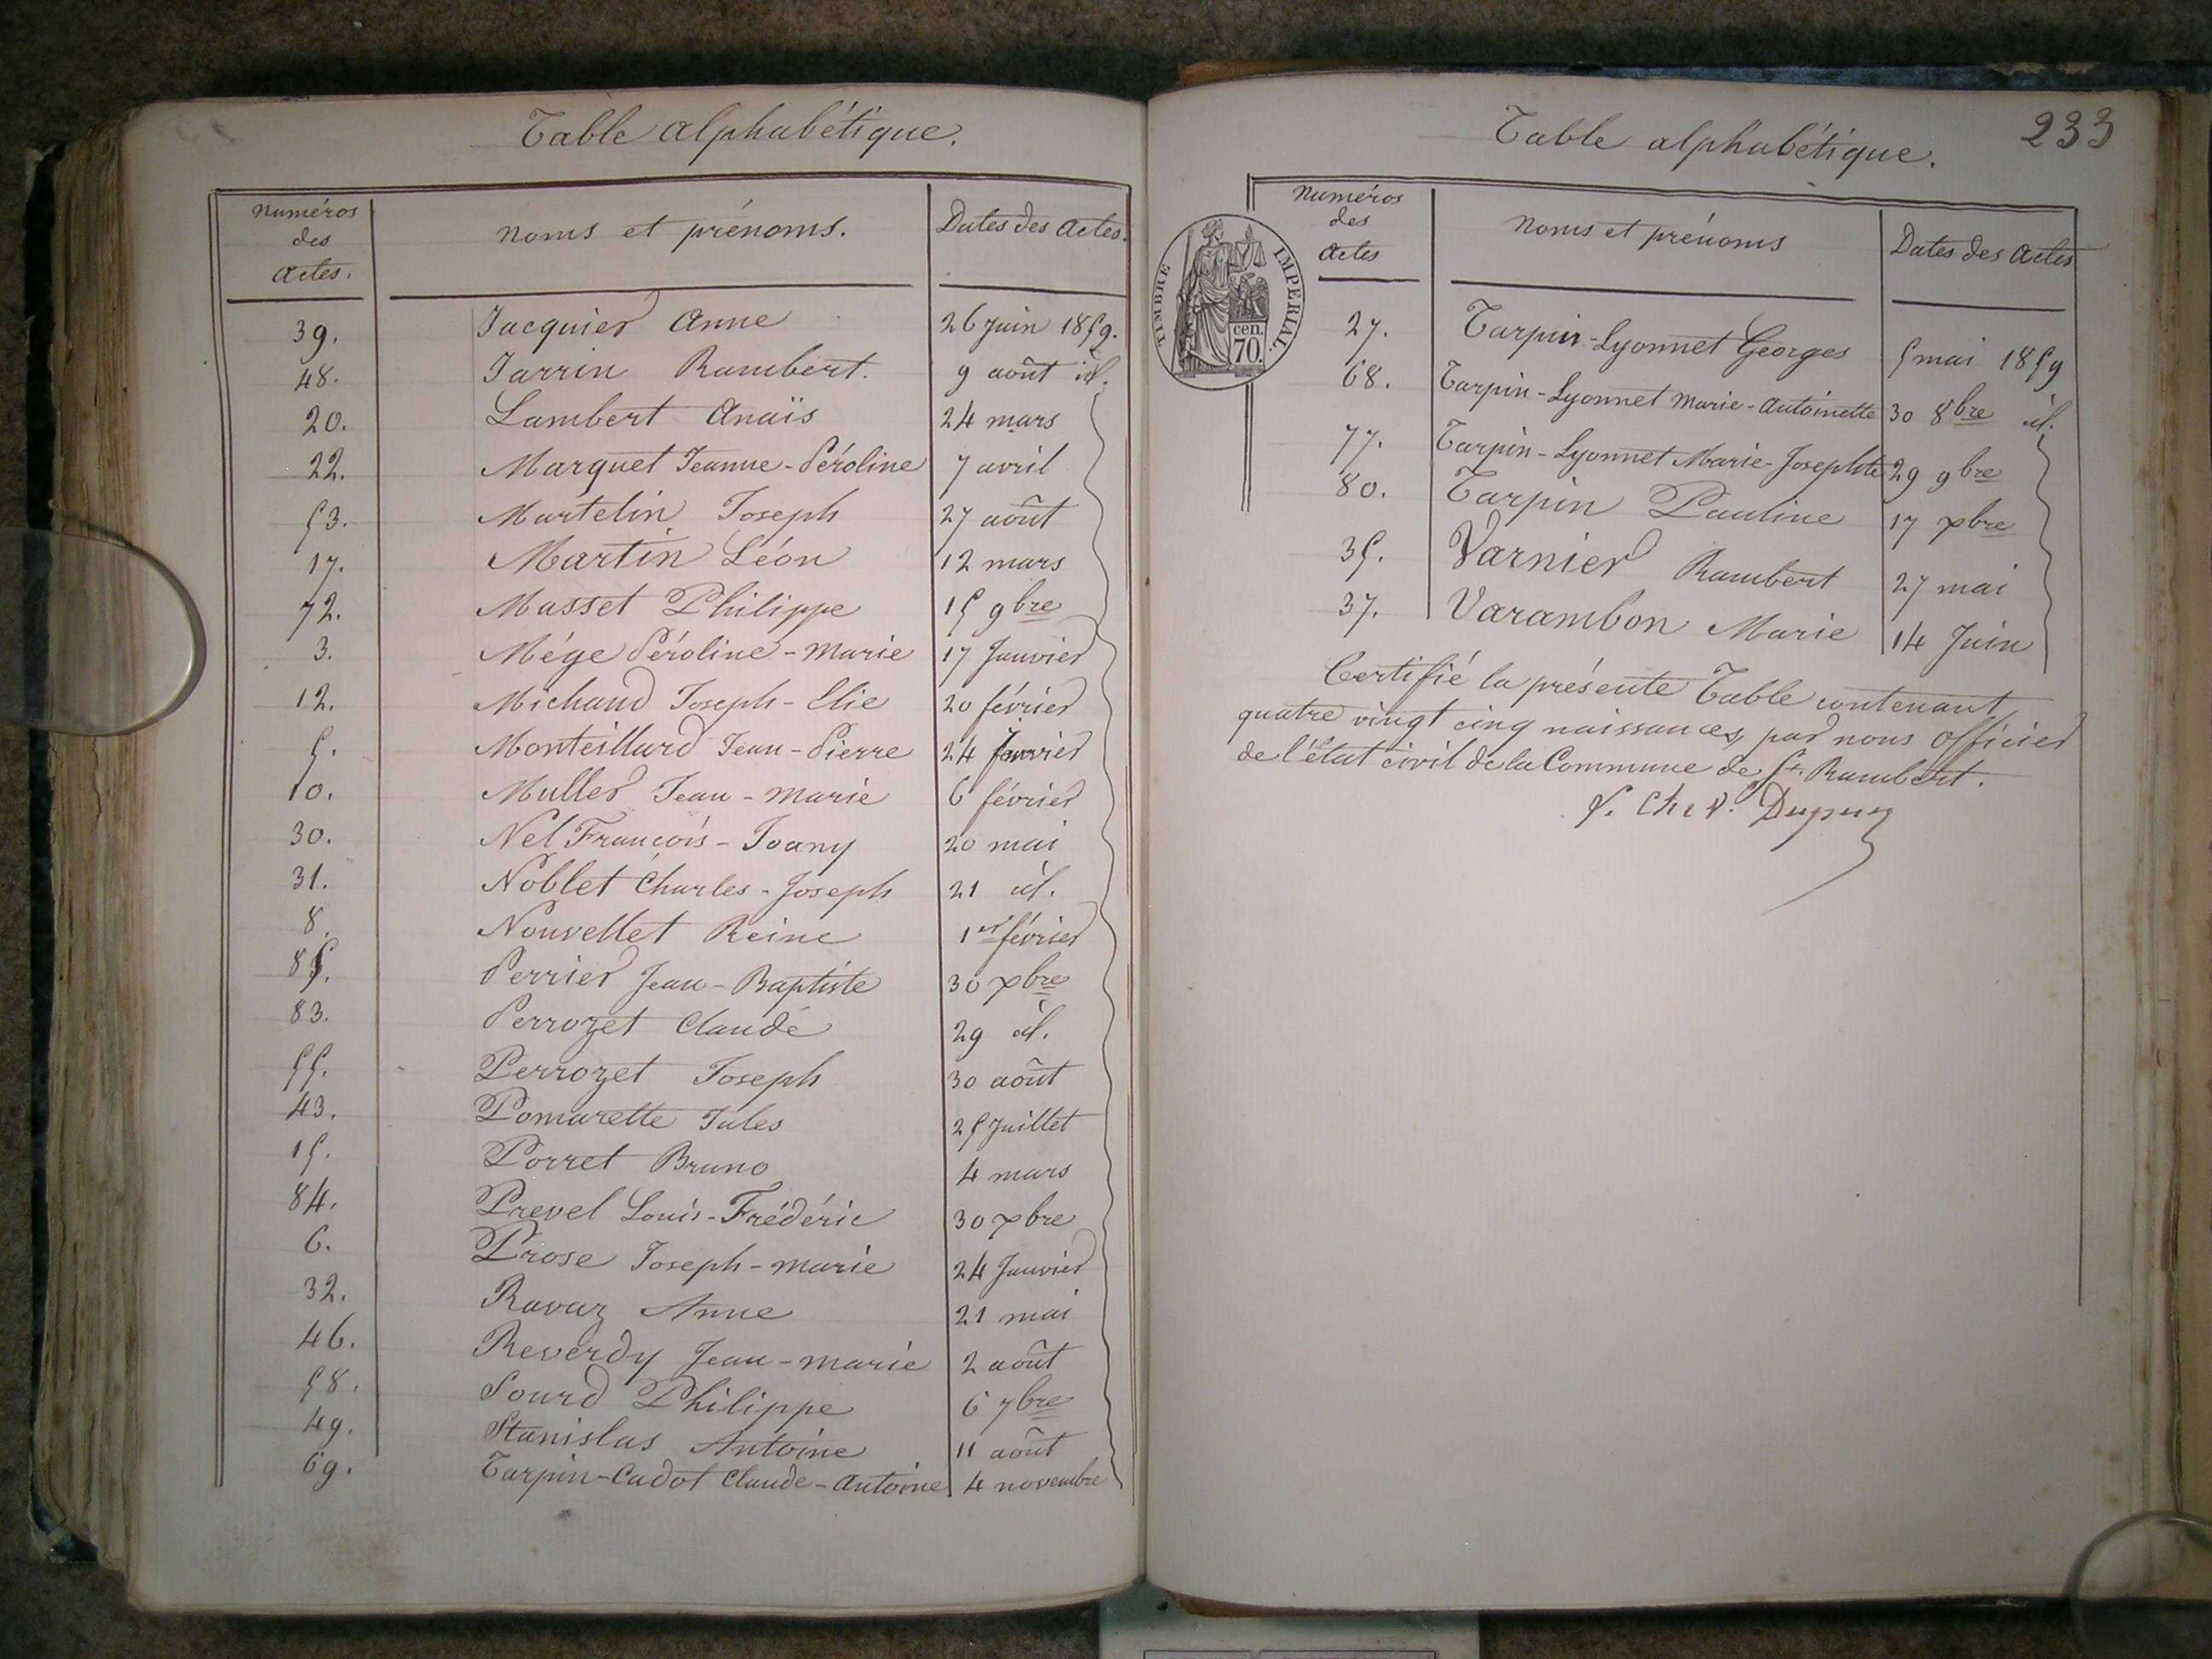 Table alphabétique.
numéros
des
actes.
noms et prénoms.
Dates des actes.
39. Jacquier Anne 26 juin 1859.
48. Jarrin Rambert. 9 août id.
20. Lambert Anaïs 24 mars
22. Marquet Jeanne-Péroline 7 avril
53. Martelin Joseph 27 août
17. Martin Léon 12 mars
72. Masset Philippe 15 9bre
3. Mége Péroline-marie 17 Janvier
12. Michaud Joseph-Elie 20 février
5. Monteillard Jean-Pierre 24 Janvier
10. Muller Jean-marie 6 février
30. Nel François-Joany 20 mai
31. Noblet Charles-Joseph 21 id.
8. Nouvellet Reine 1er février
85. Perrier Jean-Baptiste 30 xbre
83. Perrozet Claude 29 id.
55. Perrozet Joseph 30 août
43. Pomarette Jules 25 Juillet
15. Porret Bruno 4 mars
84. Prevel Louis-Frédéric 30 xbre
6. Prose Joseph-marie 24 Janvier
32. Ravaz Anne 21 mai
46. Reverdy Jean-marie 2 août
58. Sourd Philippe 6 7bre
49. Stanislas Antoine 11 août
69. Tarpin-Cadot Claude-Antoine 4 novembre
Table alphabétique.
233
numéros
des
actes
noms et prénoms
Dates des actes
TIMBRE IMPERIAL.
cen.
70.
27. Tarpin-Lyonnet Georges 5 mai 1859
68. Tarpin-Lyonnet marie-antoinette 30 8bre id.
77. Tarpin-Lyonnet Marie-Josephte 29 9bre
80. Tarpin Pauline 17 xbre
35. Varnier Rambert 27 mai
37. Varambon Marie 14 Juin
Certifié la présente Table contenant
quatre vingt cinq naissances, par nous officier
de l'état civil de la Commune de St. Rambert.
Dupuy